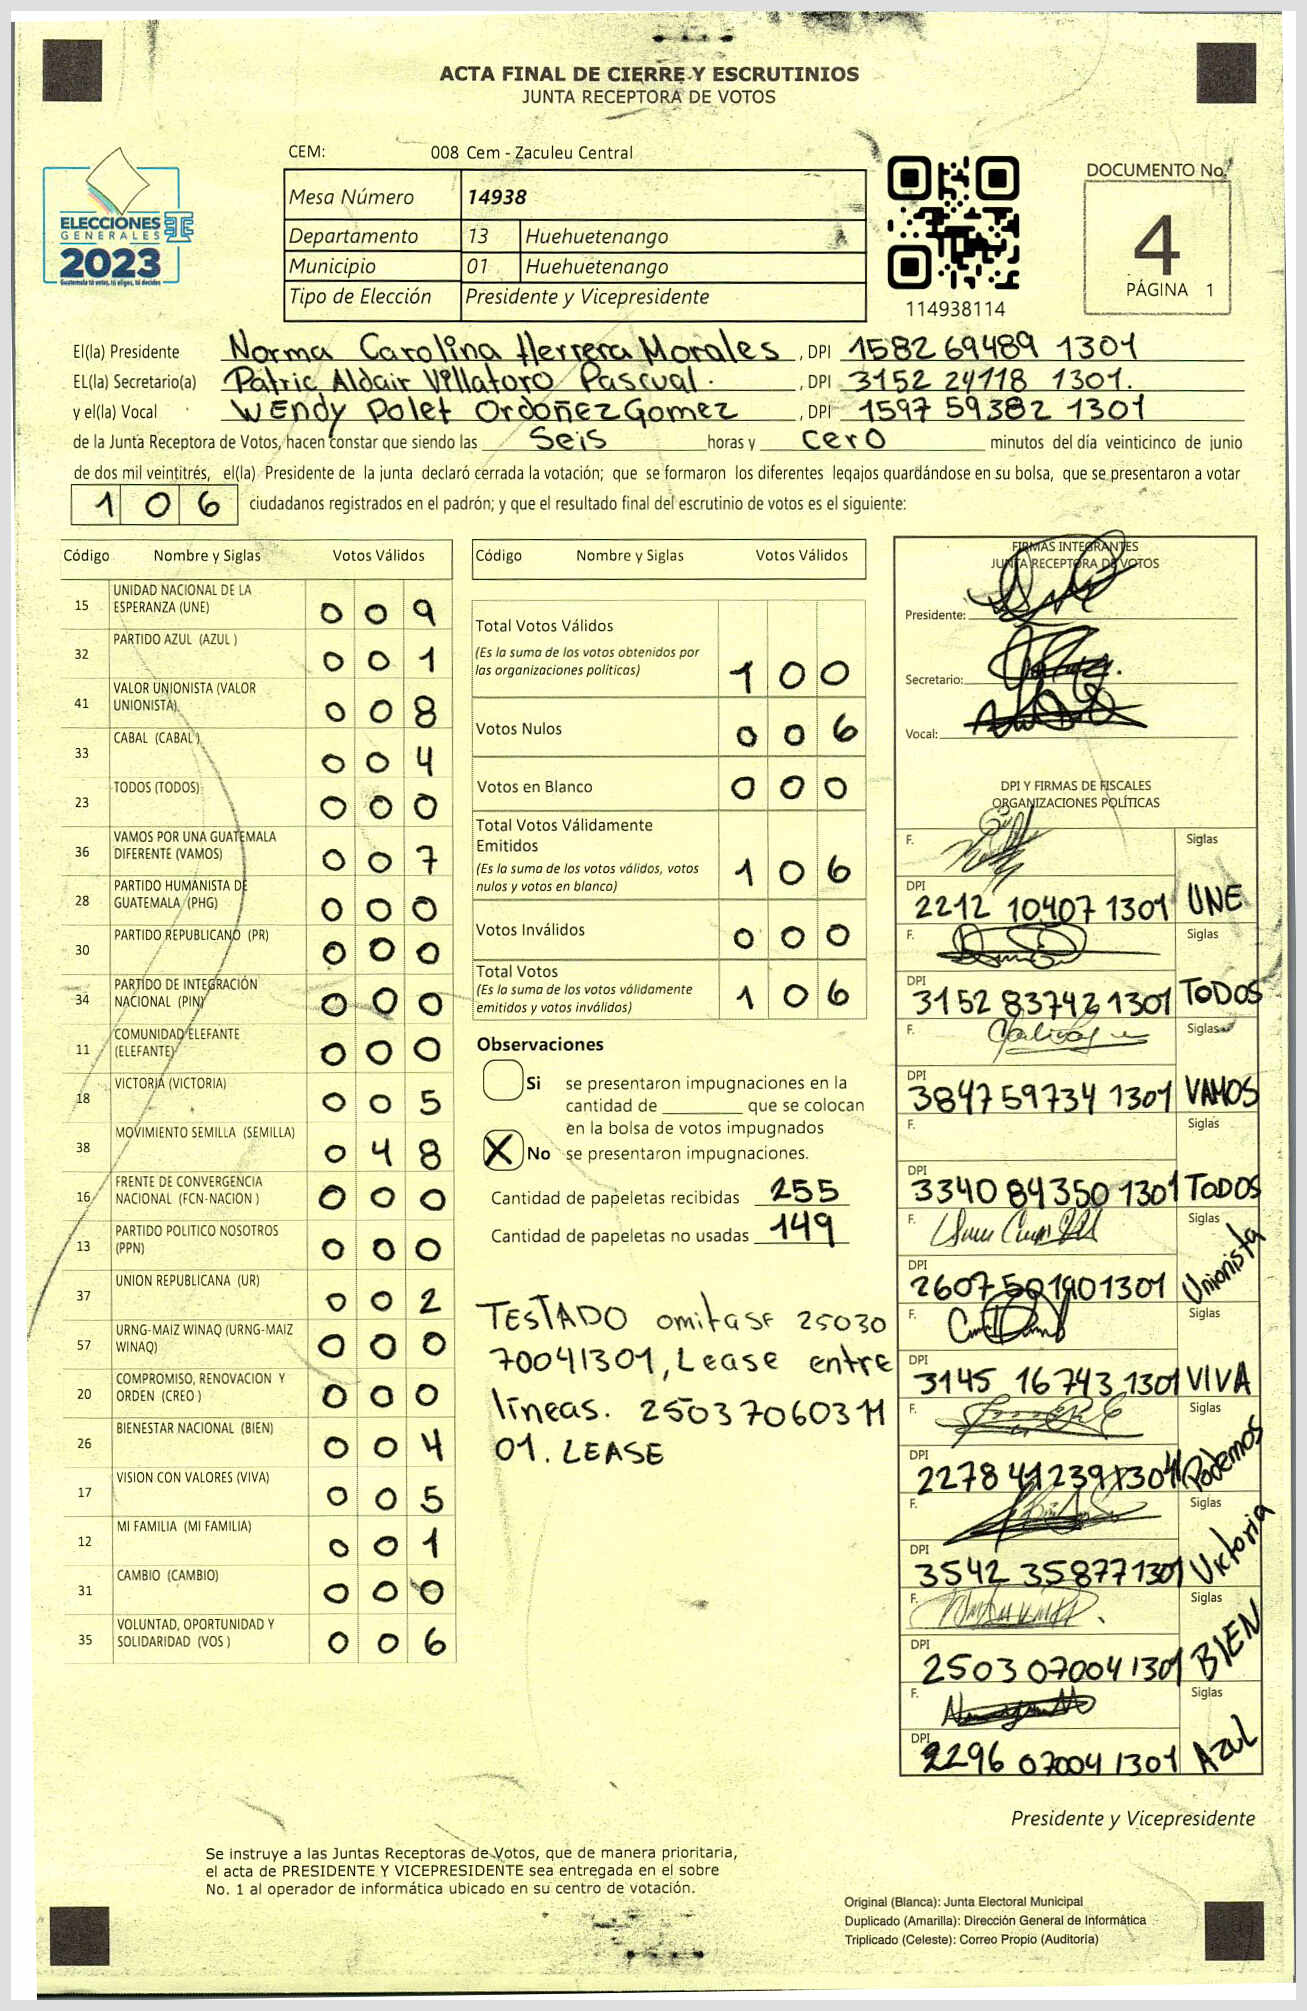 ACTA FINAL DE CIERRE Y ESCRUTINIOS
JUNTA RECEPTORA DE VOTOS
CEM: 008 Cem - Zaculeu Central
Mesa Número 14938
Departamento 13 Huehuetenango
Municipio 01 Huehuetenango
Tipo de Elección Presidente y Vicepresidente
ELECCIONES
GENERALES
2023
Guatemala tú votas, tú eliges, tú decides
114938114
DOCUMENTO No.
4
PÁGINA 1
El(la) Presidente Norma Carolina Herrera Morales, DPI 1582 69489 1301
EL(la) Secretario(a) Patric Aldair Villatoro Pascual. , DPI 3152 24118 1301.
y el(la) Vocal WEndy Polet Ordoñez Gomez , DPI 1597 59382 1301
de la Junta Receptora de Votos, hacen constar que siendo las Seis horas y cero minutos del día veinticinco de junio
de dos mil veintitrés, el(la) Presidente de la junta declaró cerrada la votación; que se formaron los diferentes legajos guardándose en su bolsa, que se presentaron a votar
106 ciudadanos registrados en el padrón; y que el resultado final del escrutinio de votos es el siguiente:
Código Nombre y Siglas Votos Válidos
15 UNIDAD NACIONAL DE LA
ESPERANZA (UNE) 0 0 9
32 PARTIDO AZUL (AZUL ) 0 0 1
41 VALOR UNIONISTA (VALOR
UNIONISTA) 0 0 8
33 CABAL (CABAL ) 0 0 4
23 TODOS (TODOS) 0 0 0
36 VAMOS POR UNA GUATEMALA
DIFERENTE (VAMOS) 0 0 7
28 PARTIDO HUMANISTA DE
GUATEMALA (PHG) 0 0 0
30 PARTIDO REPUBLICANO (PR) 0 0 0
34 PARTIDO DE INTEGRACIÓN
NACIONAL (PIN) 0 0 0
11 COMUNIDAD ELEFANTE
(ELEFANTE) 0 0 0
18 VICTORIA (VICTORIA) 0 0 5
38 MOVIMIENTO SEMILLA (SEMILLA) 0 4 8
16 FRENTE DE CONVERGENCIA
NACIONAL (FCN-NACION ) 0 0 0
13 PARTIDO POLITICO NOSOTROS
(PPN) 0 0 0
37 UNION REPUBLICANA (UR) 0 0 2
57 URNG-MAIZ WINAQ (URNG-MAIZ
WINAQ) 0 0 0
20 COMPROMISO, RENOVACION Y
ORDEN (CREO ) 0 0 0
26 BIENESTAR NACIONAL (BIEN) 0 0 4
17 VISION CON VALORES (VIVA) 0 0 5
12 MI FAMILIA (MI FAMILIA) 0 0 1
31 CAMBIO (CAMBIO) 0 0 0
35 VOLUNTAD, OPORTUNIDAD Y
SOLIDARIDAD (VOS ) 0 0 6
Código Nombre y Siglas Votos Válidos
Total Votos Válidos
(Es la suma de los votos obtenidos por
las organizaciones políticas) 1 0 0
Votos Nulos 0 0 6
Votos en Blanco 0 0 0
Total Votos Válidamente
Emitidos
(Es la suma de los votos válidos, votos
nulos y votos en blanco) 1 0 6
Votos Inválidos 0 0 0
Total Votos
(Es la suma de los votos válidamente
emitidos y votos inválidos) 1 0 6
Observaciones
Si se presentaron impugnaciones en la
cantidad de ________ que se colocan
en la bolsa de votos impugnados
X No se presentaron impugnaciones.
Cantidad de papeletas recibidas 255
Cantidad de papeletas no usadas 149
TESTADO omitase 25030
70041301, Lease entre
líneas. 25037060311
01. LEASE
FIRMAS INTEGRANTES
JUNTA RECEPTORA DE VOTOS
Presidente:
Secretario:
Vocal:
DPI Y FIRMAS DE FISCALES
ORGANIZACIONES POLÍTICAS
F. Siglas
DPI
2212 10407 1301 UNE
F. Siglas
DPI
3152 83742 1301 TODOS
F. Siglas
DPI
3847 59734 1301 VAMOS
F. Siglas
DPI
3340 84350 1301 TODOS
F. Siglas
DPI
2607 501901301 Unionista
F. Siglas
DPI
3145 16743 1301 VIVA
F. Siglas
DPI
2278 41239 1304 Podemos
F. Siglas
DPI
3542 35877 1301 Victoria
F. Siglas
DPI
2503 07004 1301 BIEN
F. Siglas
DPI
2296 07004 1301 AZUL
Presidente y Vicepresidente
Se instruye a las Juntas Receptoras de Votos, que de manera prioritaria,
el acta de PRESIDENTE Y VICEPRESIDENTE sea entregada en el sobre
No. 1 al operador de informática ubicado en su centro de votación.
Original (Blanca): Junta Electoral Municipal
Duplicado (Amarilla): Dirección General de Informática
Triplicado (Celeste): Correo Propio (Auditoría)